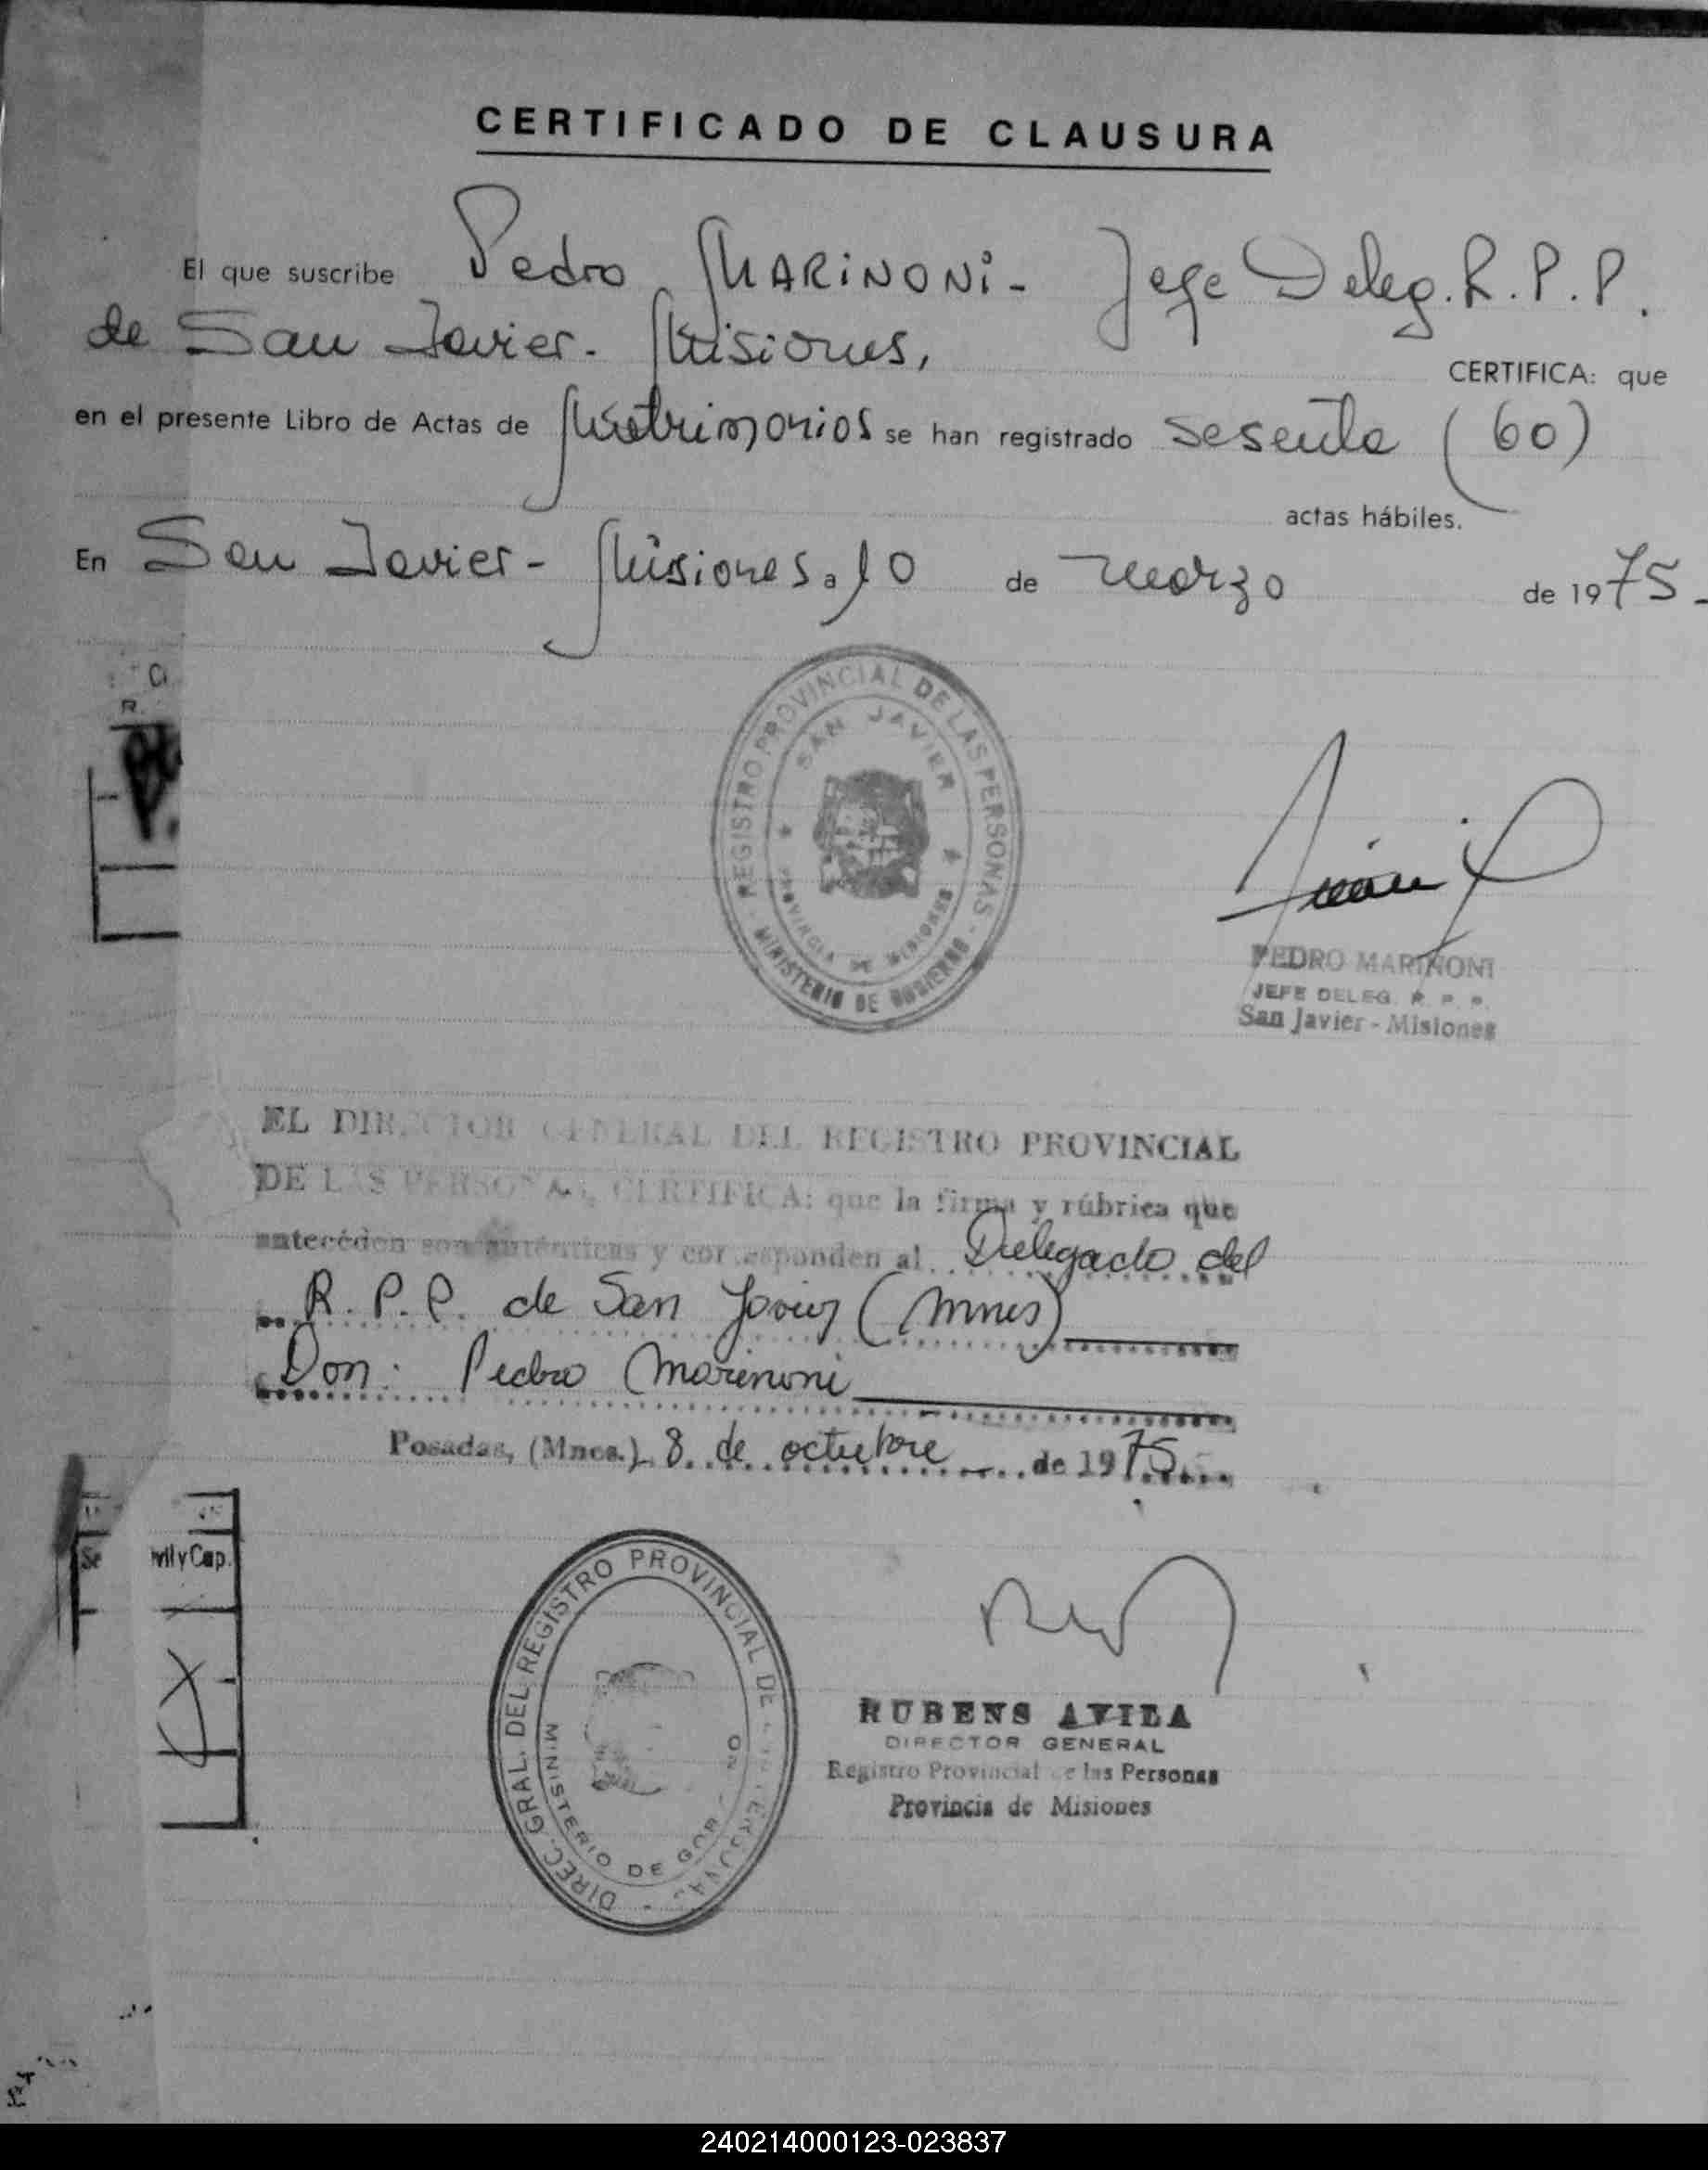 CERTIFICADO DE CLAUSURA
El que suscribe Pedro MARINONI - Jefe Deleg. R. P. P.
de San Javier - Misiones,
CERTIFICA: que
en el presente Libro de Actas de Matrimonios se han registrado sesenta (60)
actas hábiles.
En San Javier - Misiones a 10 de marzo de 1975 -
REGISTRO PROVINCIAL DE LAS PERSONAS - MINISTERIO DE GOBIERNO -
SAN JAVIER
PROVINCIA DE MISIONES
PEDRO MARINONI
JEFE DELEG. R. P. P.
San Javier - Misiones
EL DIRECTOR GENERAL DEL REGISTRO PROVINCIAL
DE LAS PERSONAS, CERTIFICA: que la firma y rúbrica que
anteceden son auténticas y corresponden al Delegado del
R. P. P. de San Javier (Mnes)
Don: Pedro Marinoni
Posadas, (Mnes.) 8 de octubre de 1975
vil y Cap.
DIREC. GRAL. DEL REGISTRO PROVINCIAL DE
MINISTERIO DE GOB
RUBENS AVILA
DIRECTOR GENERAL
Registro Provincial de las Personas
Provincia de Misiones
240214000123-023837